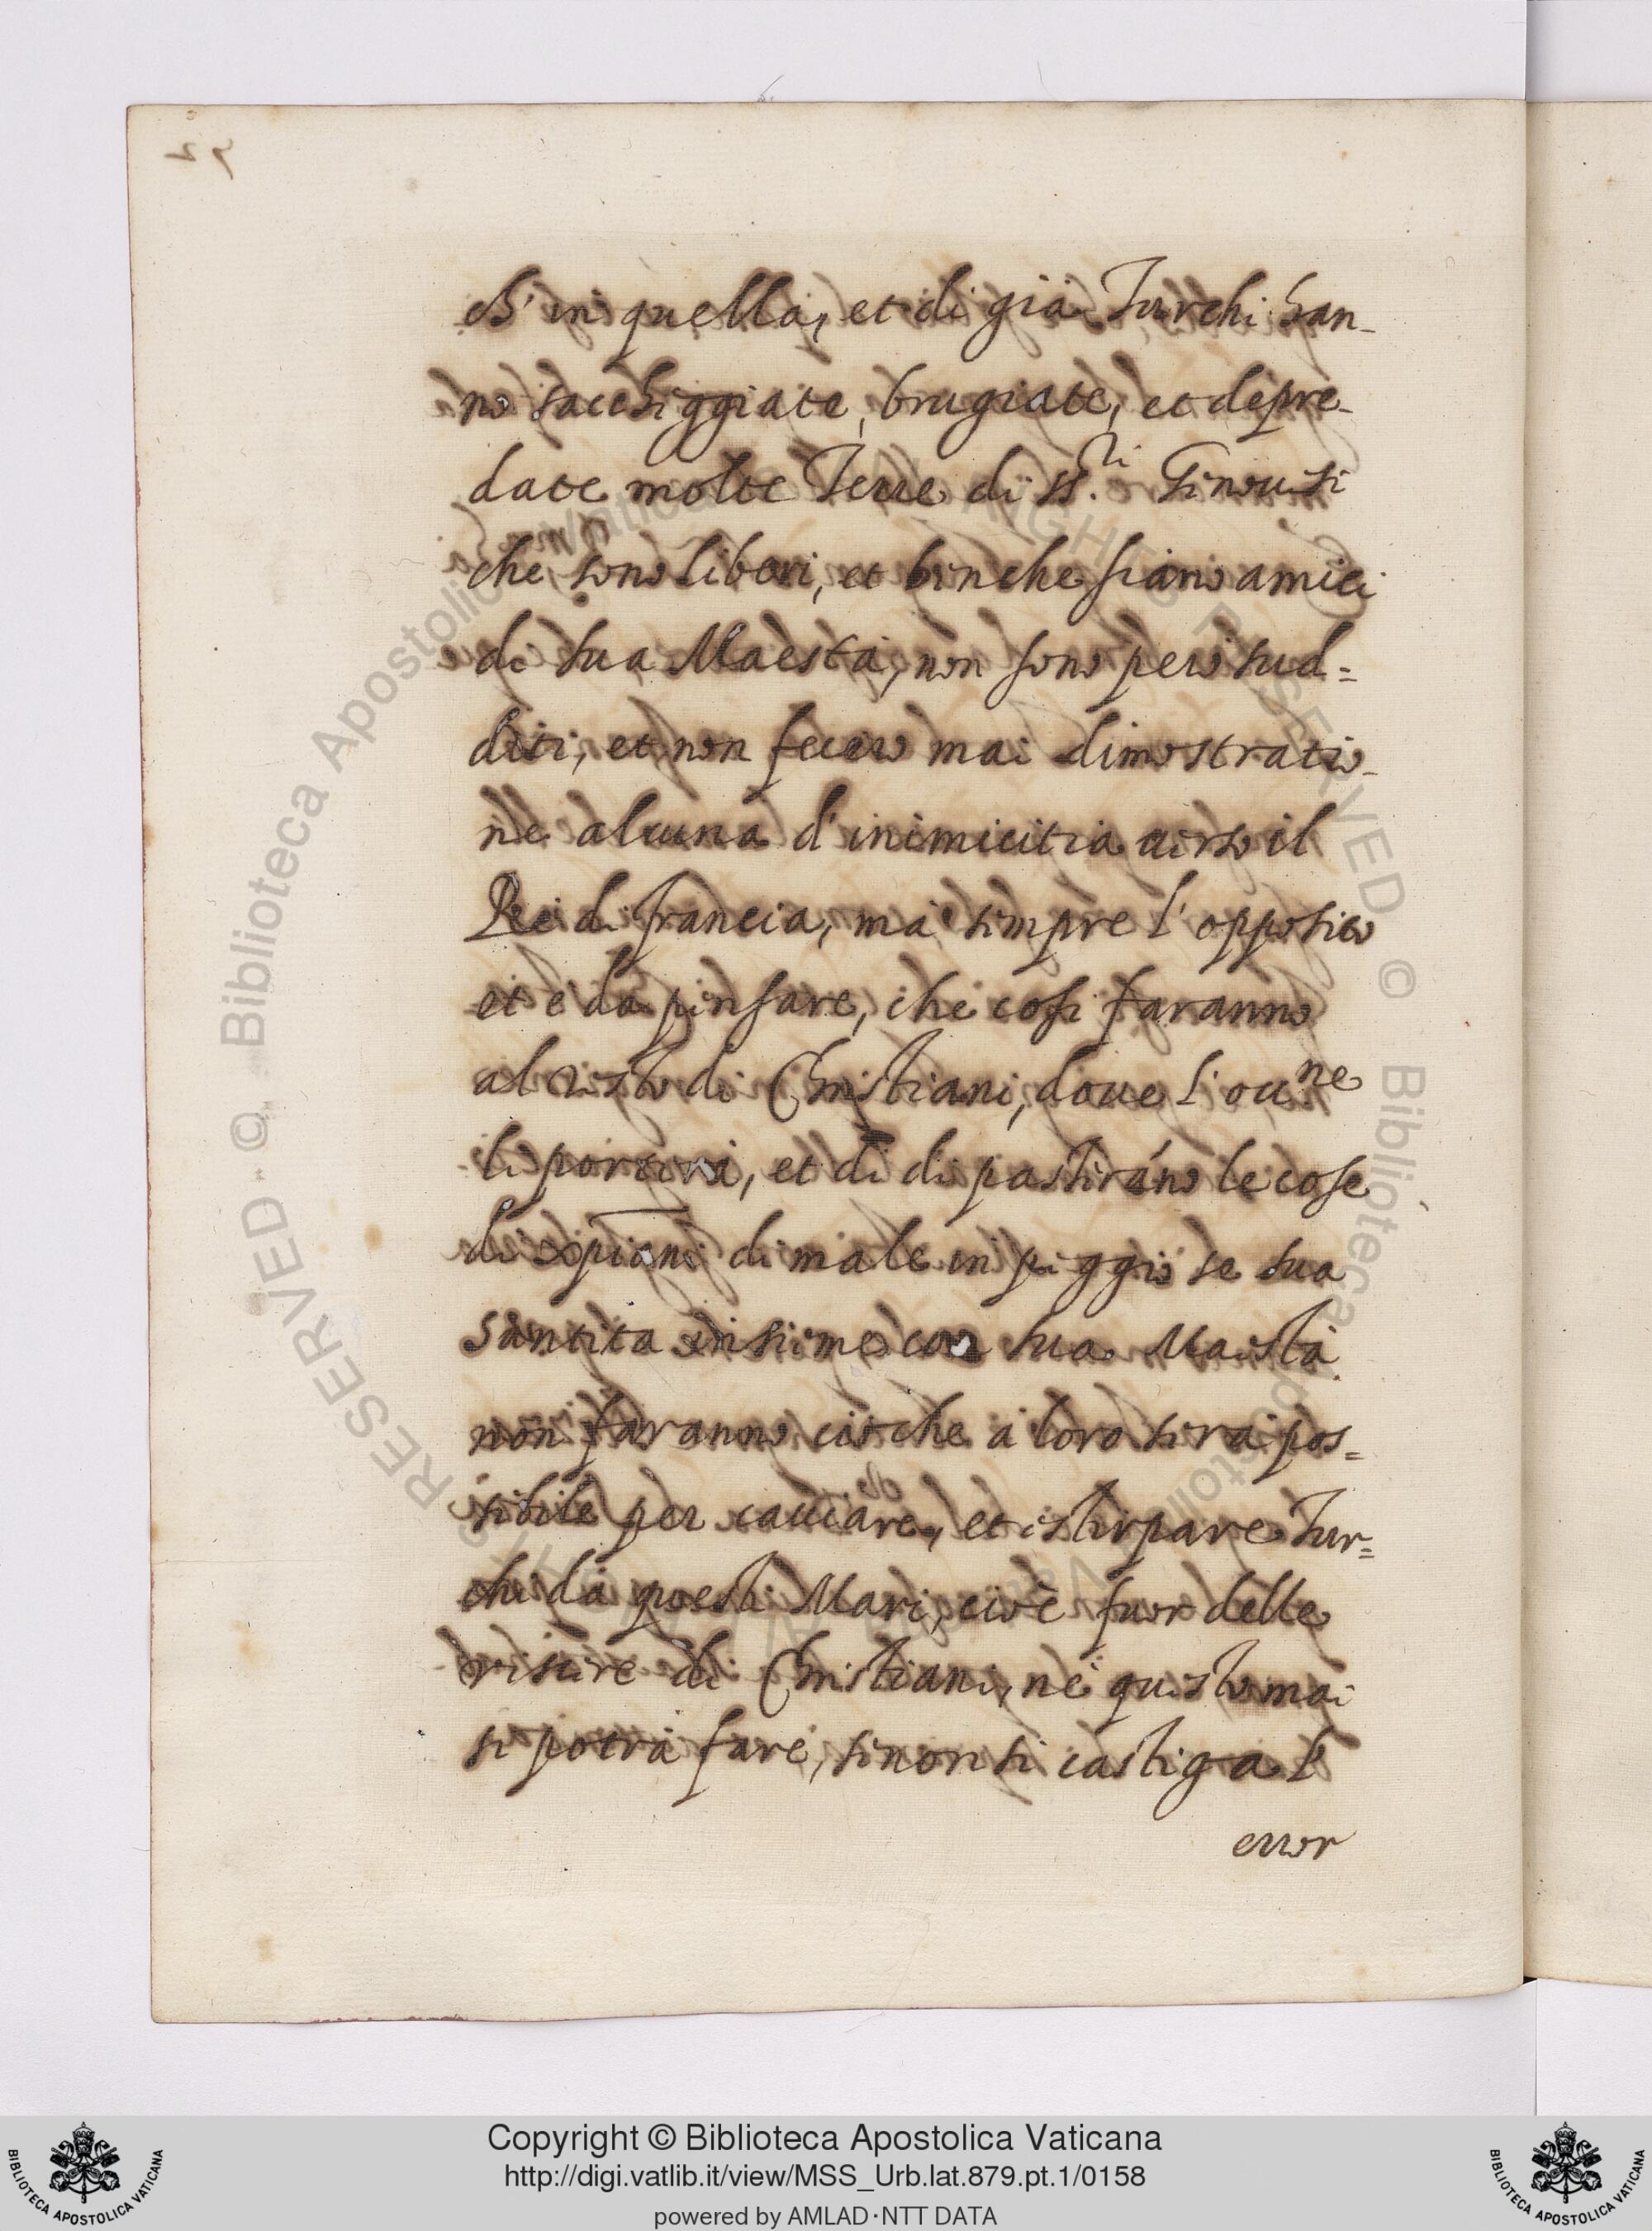 ch' in quella, et di già Turchi han-
no saccheggiate, brugiate, et depre-
date molte Terre di SS.ri Genouesi
che sono liberi, et benche siano amici
di sua Maestà, non sono però sud=
diti, et non fecero mai dimostratio-
ne alcuna d'inimicitia uerso il
Re di Francia, mà sempre l'opposito
et è da pensare, che cosi faranno
al resto di Christiani, doue l'occ.ne
li porterà, et di di passeráno le cose
di xpiani di male in peggio se sua
Santità insieme con sua Maestà
non faranno ciò che à loro serà pos=
sibile per cacciare, et estirpare Tur=
chi da questi Mari, cioè fuor delle
uiscere di Christiani, nè questo mai
si potrà fare, se non si castiga l'
error
Copyright © Biblioteca Apostolica Vaticana
http://digi.vatlib.it/view/MSS_Urb.lat.879.pt.1/0158
powered by AMLAD·NTT DATA
BIBLIOTECA APOSTOLICA VATICANA
BIBLIOTECA APOSTOLICA VATICANA